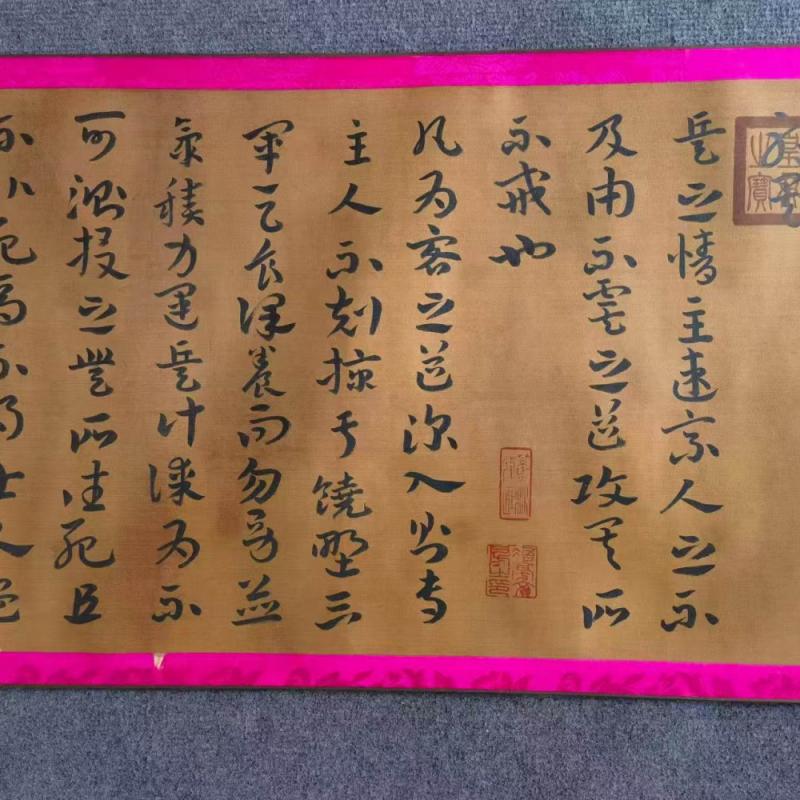 兵之情主速乘人之不
及由不虞之道攻其所
不戒也
凡為客之道深入則專
主人不剋掠于饒野三
軍足食謹養而勿勞並
氣積力運兵計謀為不
可測投之無所往死且
不北死焉不得士人盡